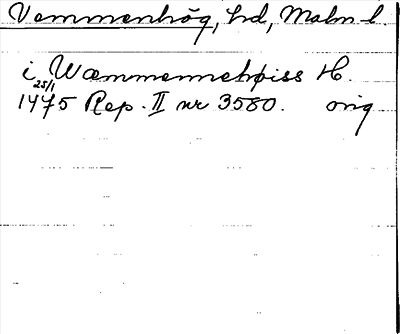 Vemmenhög, hd, Malm. l.
i Wæmmennehøiss H.
25/1
1475 Rep. II nr 3580. orig